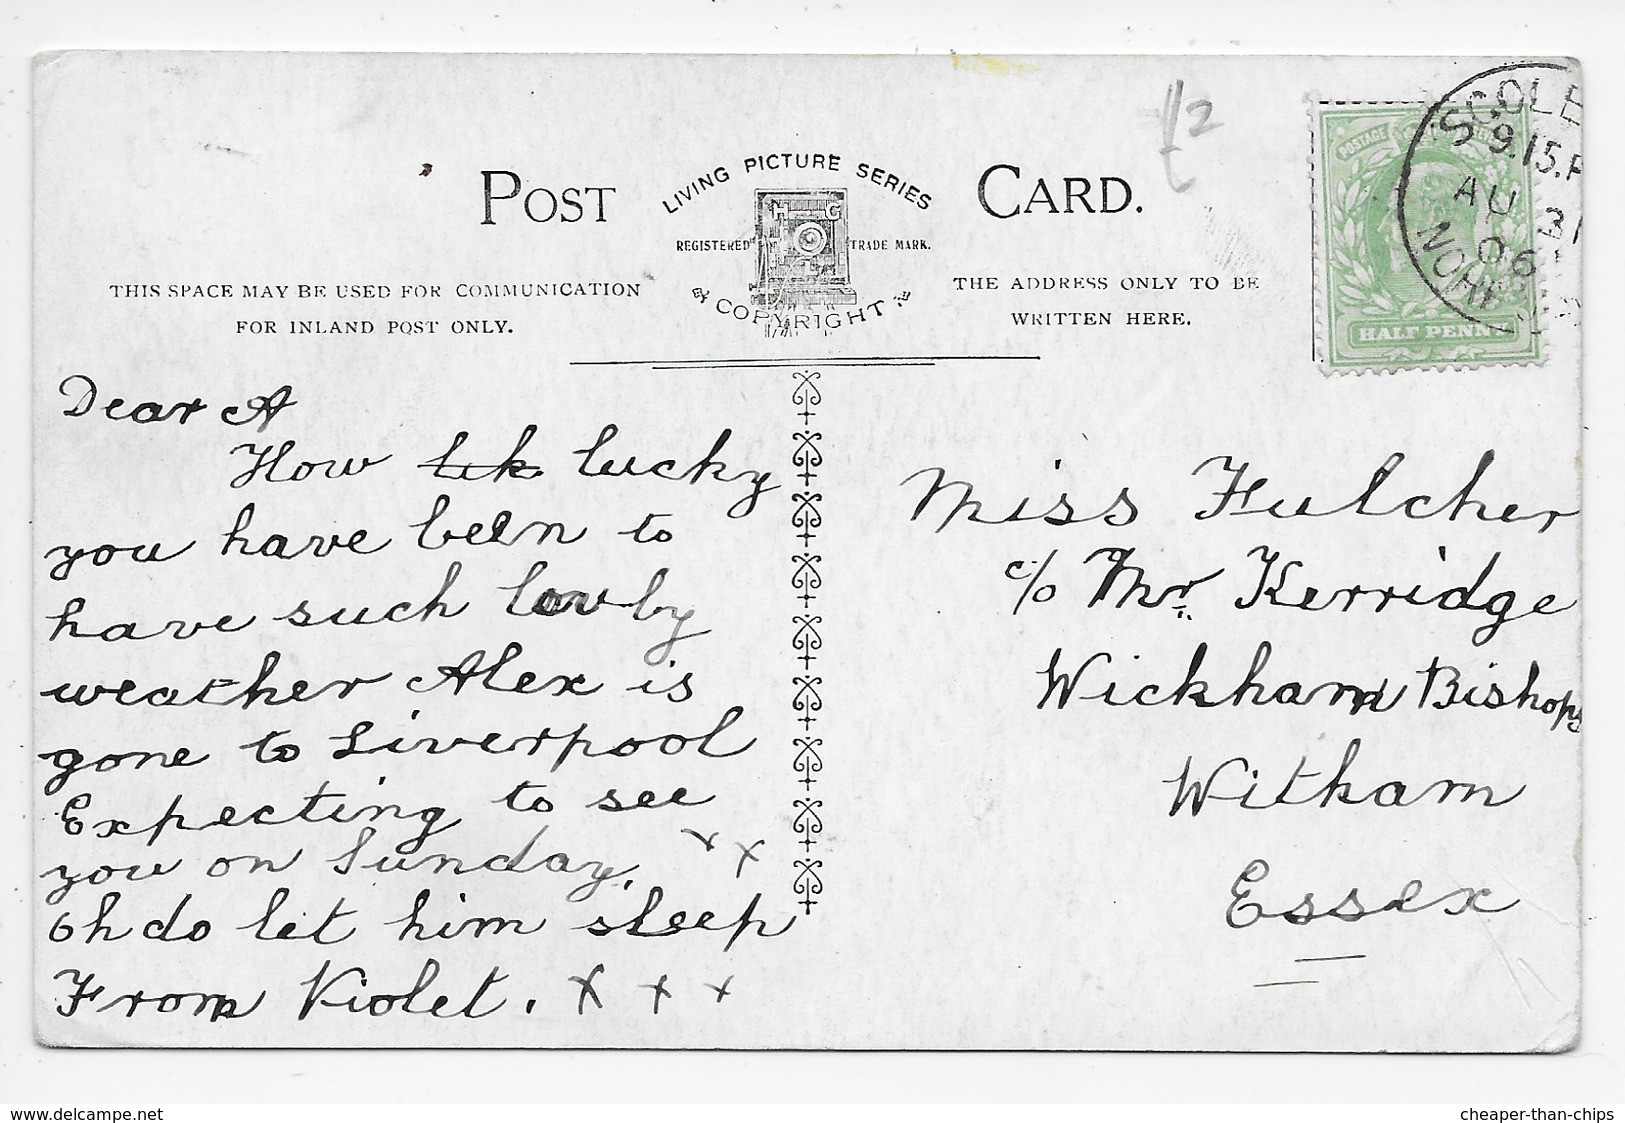 POST CARD.
LIVING PICTURE SERIES
H G
REGISTERED TRADE MARK.
COPYRIGHT
THIS SPACE MAY BE USED FOR COMMUNICATION
FOR INLAND POST ONLY.
THE ADDRESS ONLY TO BE
WRITTEN HERE.
1/2
POSTAGE
HALF PENNY
SCOLE
9.15.P
AU 31
06
Dear A
How luk lucky
you have been to
have such lovly
weather Alex is
gone to Liverpool
Expecting to see
you on Sunday. x x
oh do let him sleep
From Violet. x x x
Miss Fulcher
c/o Mr. Kerridge
Wickham Bishops
Witham
Essex
www.delcampe.net
cheaper-than-chips